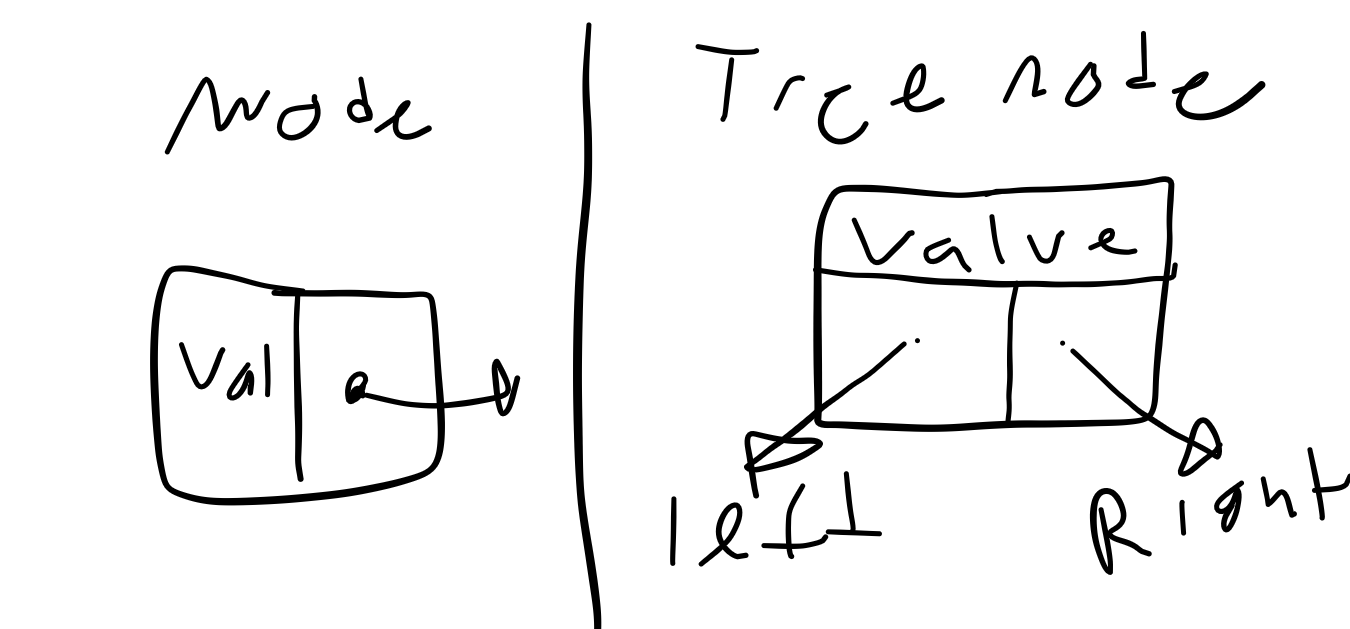 Node
Val
Tree node
Value
left
Right